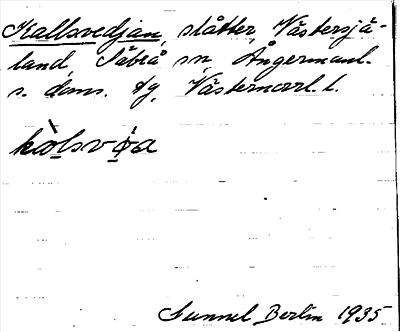 Kallsvedjan, slåtter, Västersjä-
land Säbrå sn Ångermanl.
s. doms. tg, Västernorrl. l.
kòlsvǿa
Gunnel Berlin 1935